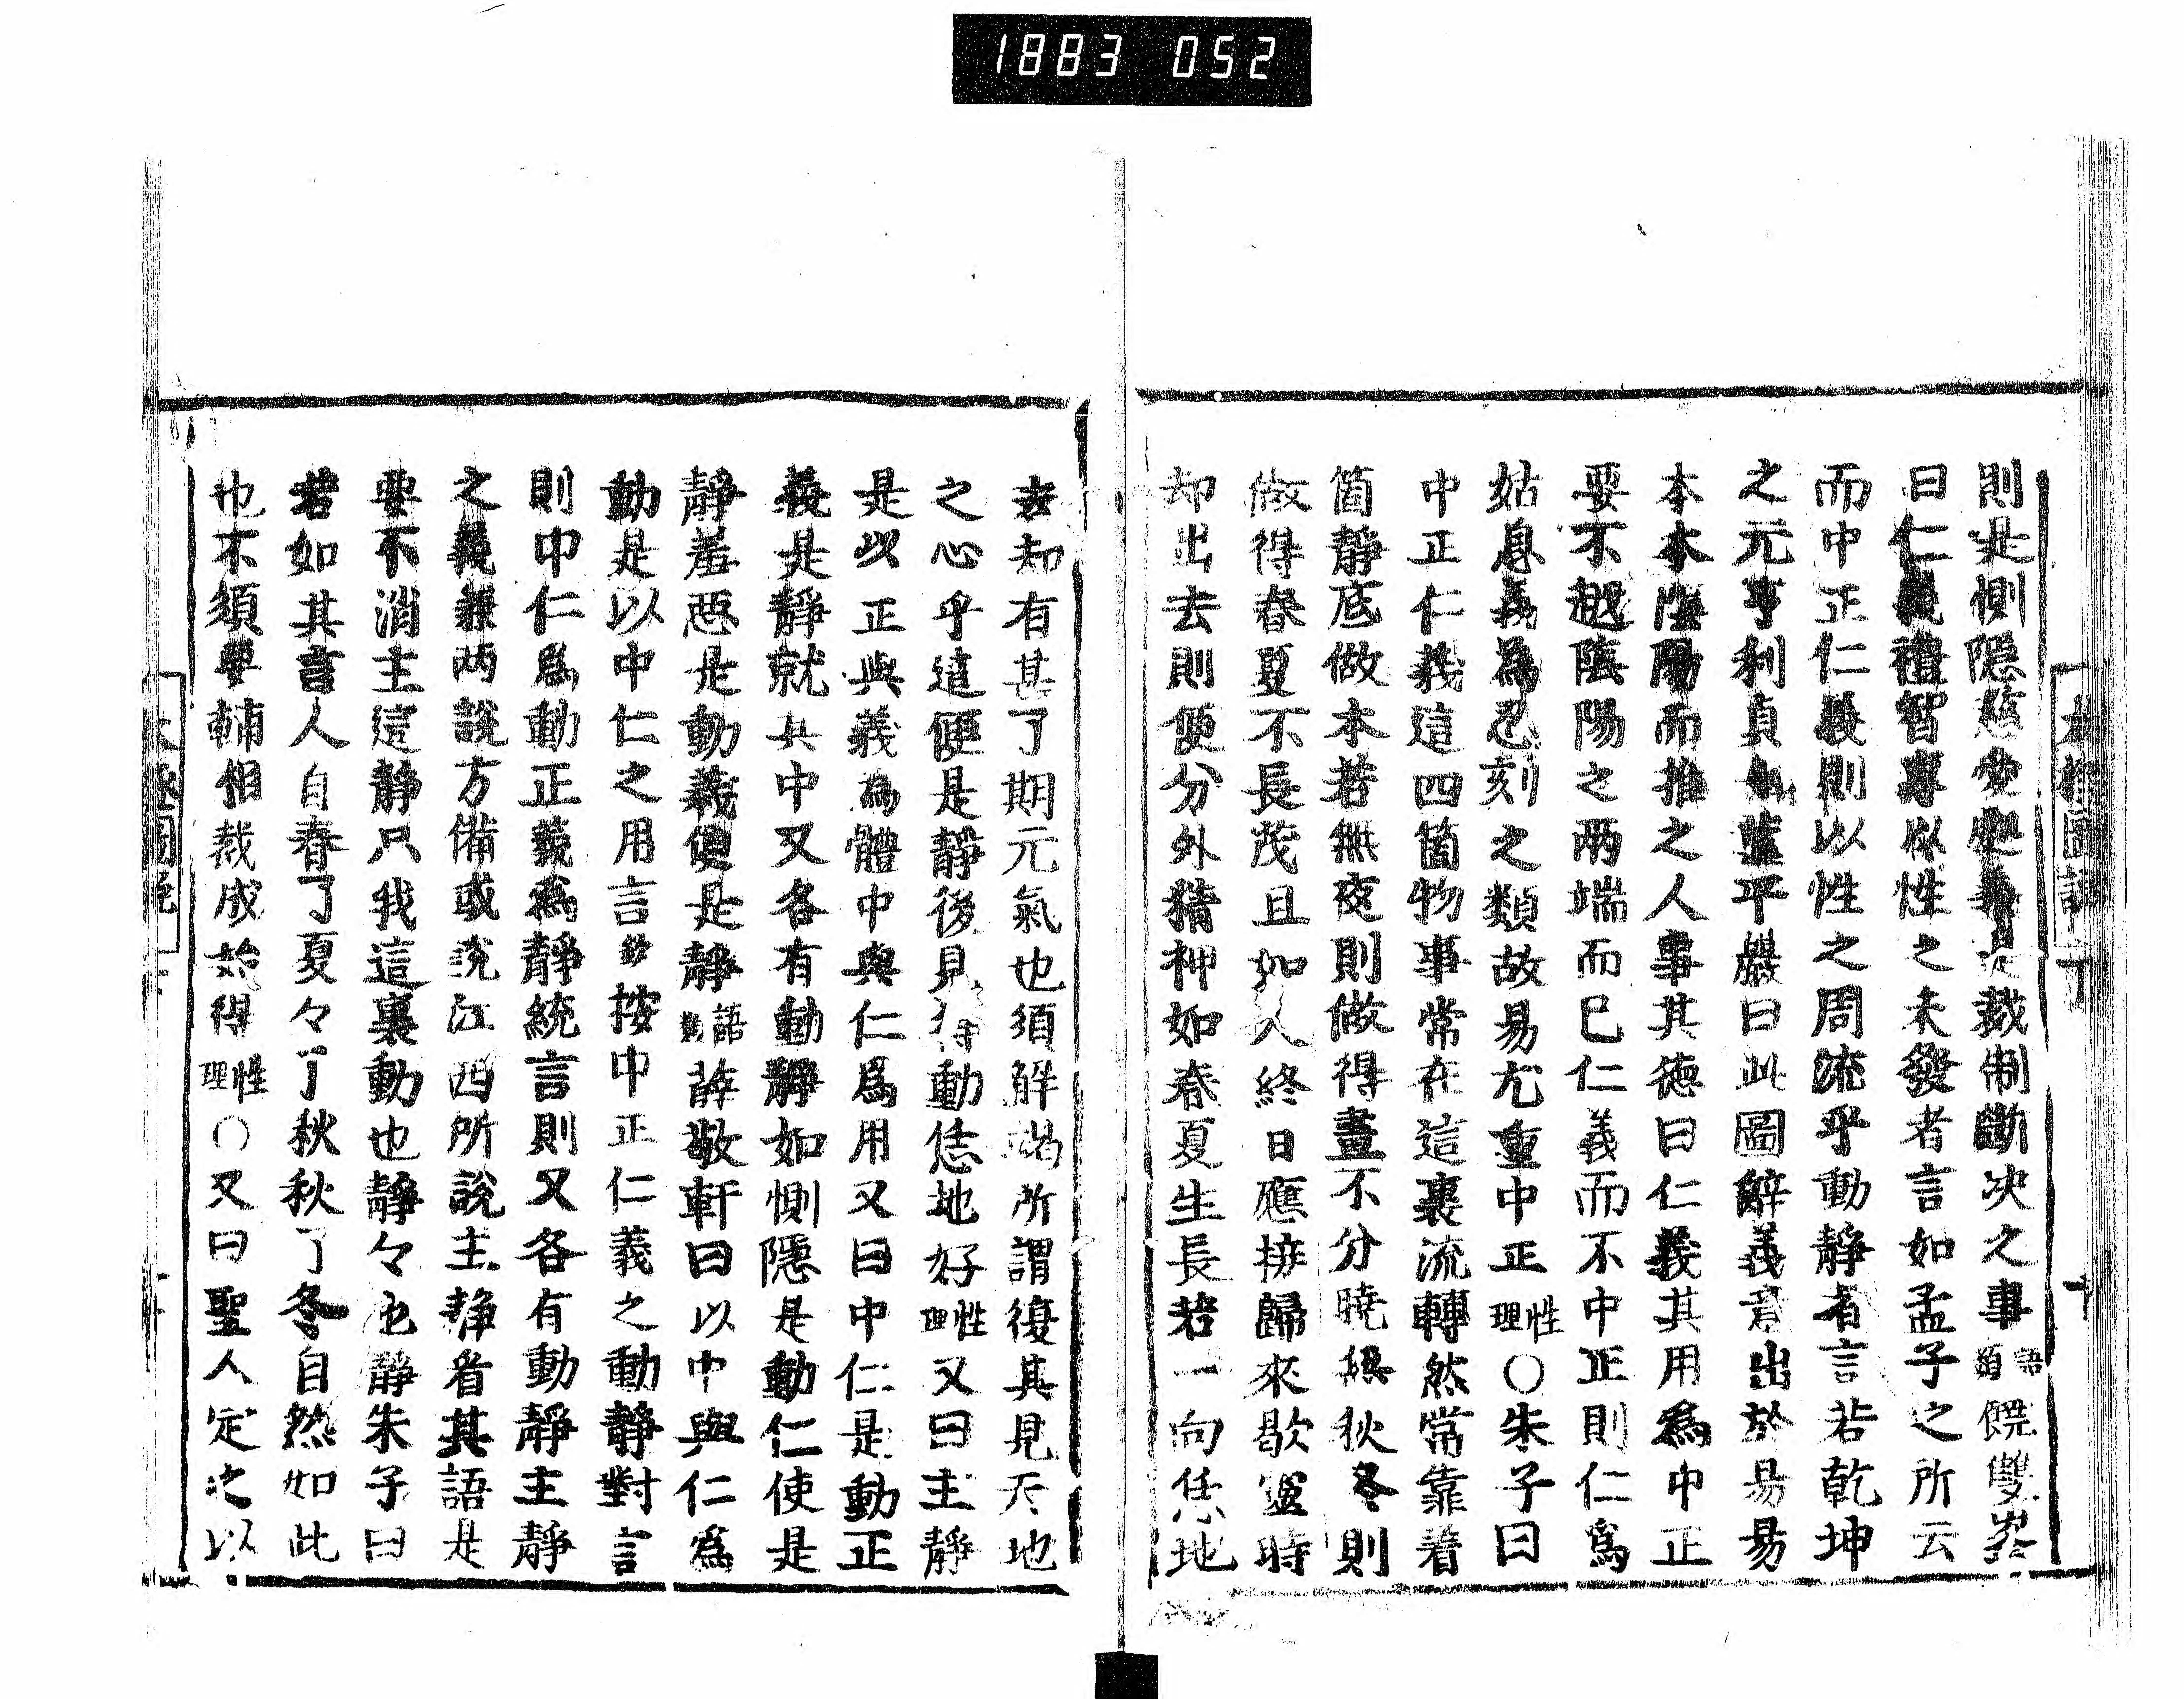 1883 052
則是惻隱慈愛處義是裁制斷决之事語類饒雙峯
曰仁義禮智專以性之未發者言如孟子之所云
而中正仁義則以性之周流乎動靜者言若乾坤
之元亨利貞也葉平巖曰此圖解義意出於易易
本本陰陽而推之人事其德曰仁義其用為中正
要不越陰陽之两端而已仁義而不中正則仁爲
姑息義為忍刻之類故易尤重中正性理〇朱子曰
中正仁義這四箇物事常在這裏流轉然常靠着
箇靜底做本若無夜則做得晝不分曉無秋冬則
做得春夏不長茂且如人終日應接歸來歇室時
却出去則便分外精神如春夏生長若一向恁地
去却有甚了期元氣也須解竭所謂復其見天地
之心乎這便是靜後見得動恁地好性理又曰主靜
是以正與義為體中與仁爲用又曰中仁是動正
義是靜就其中又各有動靜如惻隱是動仁使是
靜羞惡是動義便是靜語類薛敬軒曰以中與仁為
動是以中仁之用言鈔按中正仁義之動靜對言
則中仁爲動正義為靜統言則又各有動靜主靜
之義兼两說方備或說江西所說主静者其語是
要不消主這静只我這裏動也靜々也静朱子曰
若如其言人自春了夏々了秋秋了冬自然如此
也不須要輔相裁成始得性理〇又曰聖人定之以